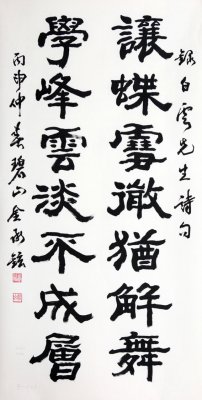 錄白雲先生詩句
讓蝶雪微猶解舞
學峰雲淡不成層
丙申仲春碧山金